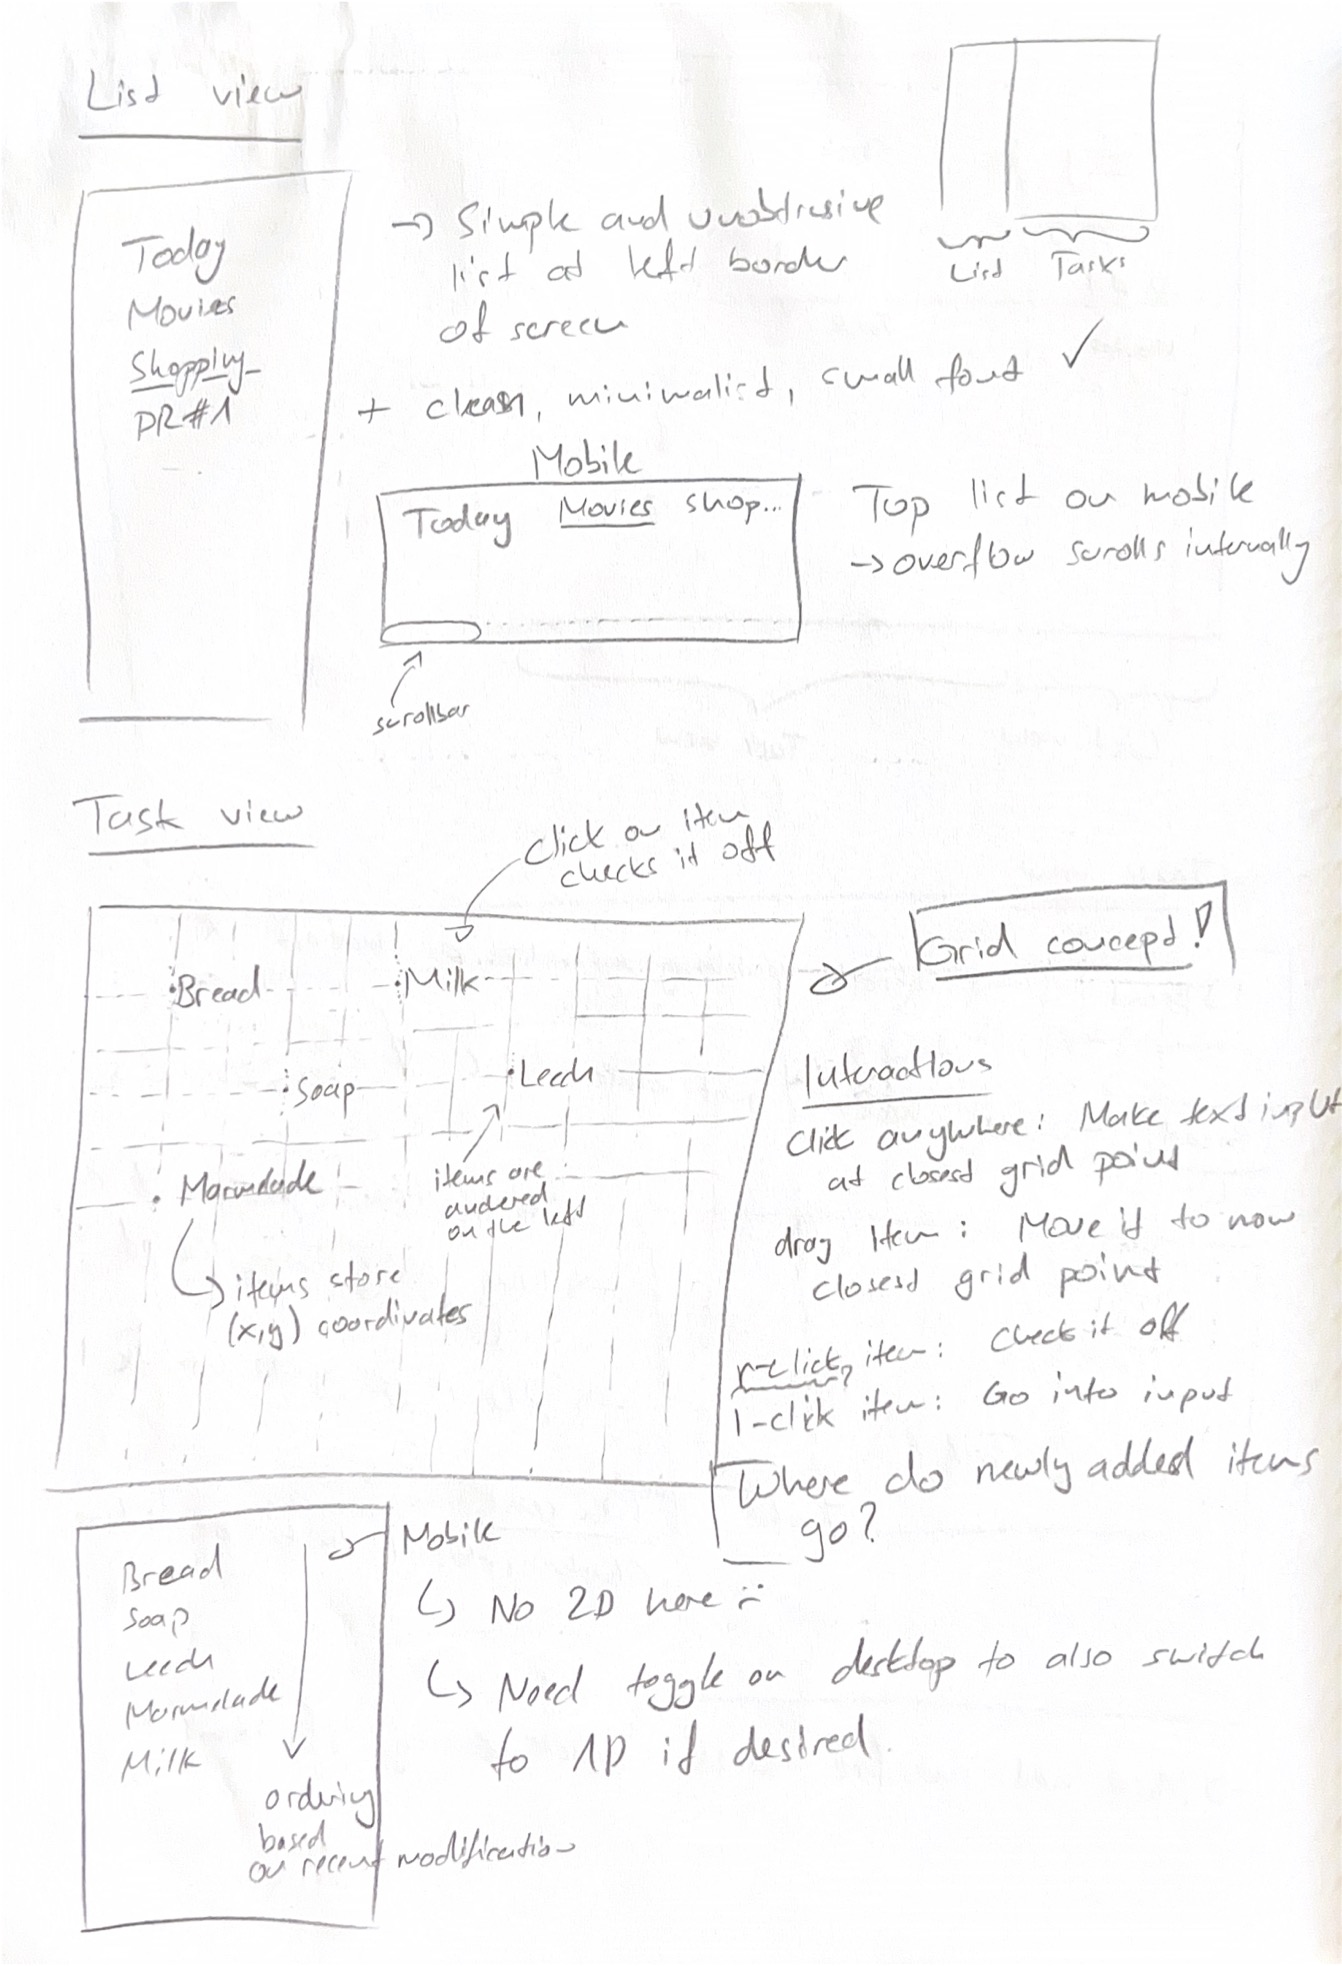 List view
Today
Movies
Shopping
PR#1
→ Simple and unobtrusive
list at left border
of screen
List
Tasks
+ clean, minimalist, small font ✓
Mobile
Today Movies shop...
scrollbar
Top list on mobile
→ overflow scrolls internally
Task view
click on item
checks it off
Bread
Milk
Soap
Leech
Marmelade
items are
anchored
on the left
items store
(x,y) coordinates
Grid concept!
Interactions
Click anywhere: Make text input
at closest grid point
drag item: Move it to now
closest grid point
r-click item: Check it off
l-click item: Go into input
Where do newly added items
go?
Bread
Soap
Leech
Marmelade
Milk
ordering
based
on recent modification
Mobile
No 2D here
Need toggle on desktop to also switch
to 1D if desired.